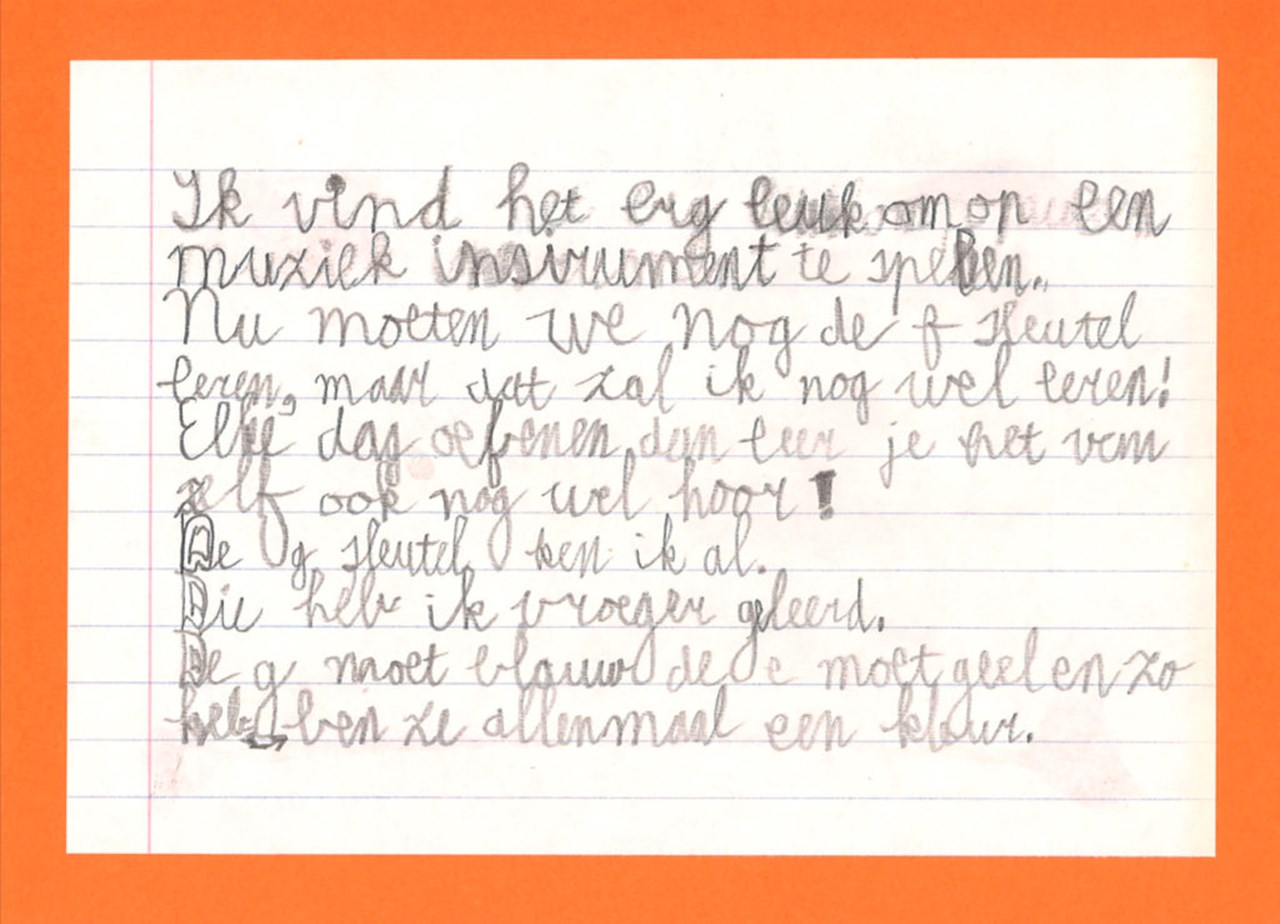 Ik vind het erg leuk om op een
muziek instrument te spelen.
Nu moeten we nog de f sleutel
leren, maar dat zal ik nog wel leren!
Elke dag oefenen dan leer je het van
zelf ook nog wel hoor!
De g sleutel ken ik al.
Die heb ik vroeger geleerd.
De g moet blauw de e moet geel en zo
heb ben ze allenmaal een kleur.